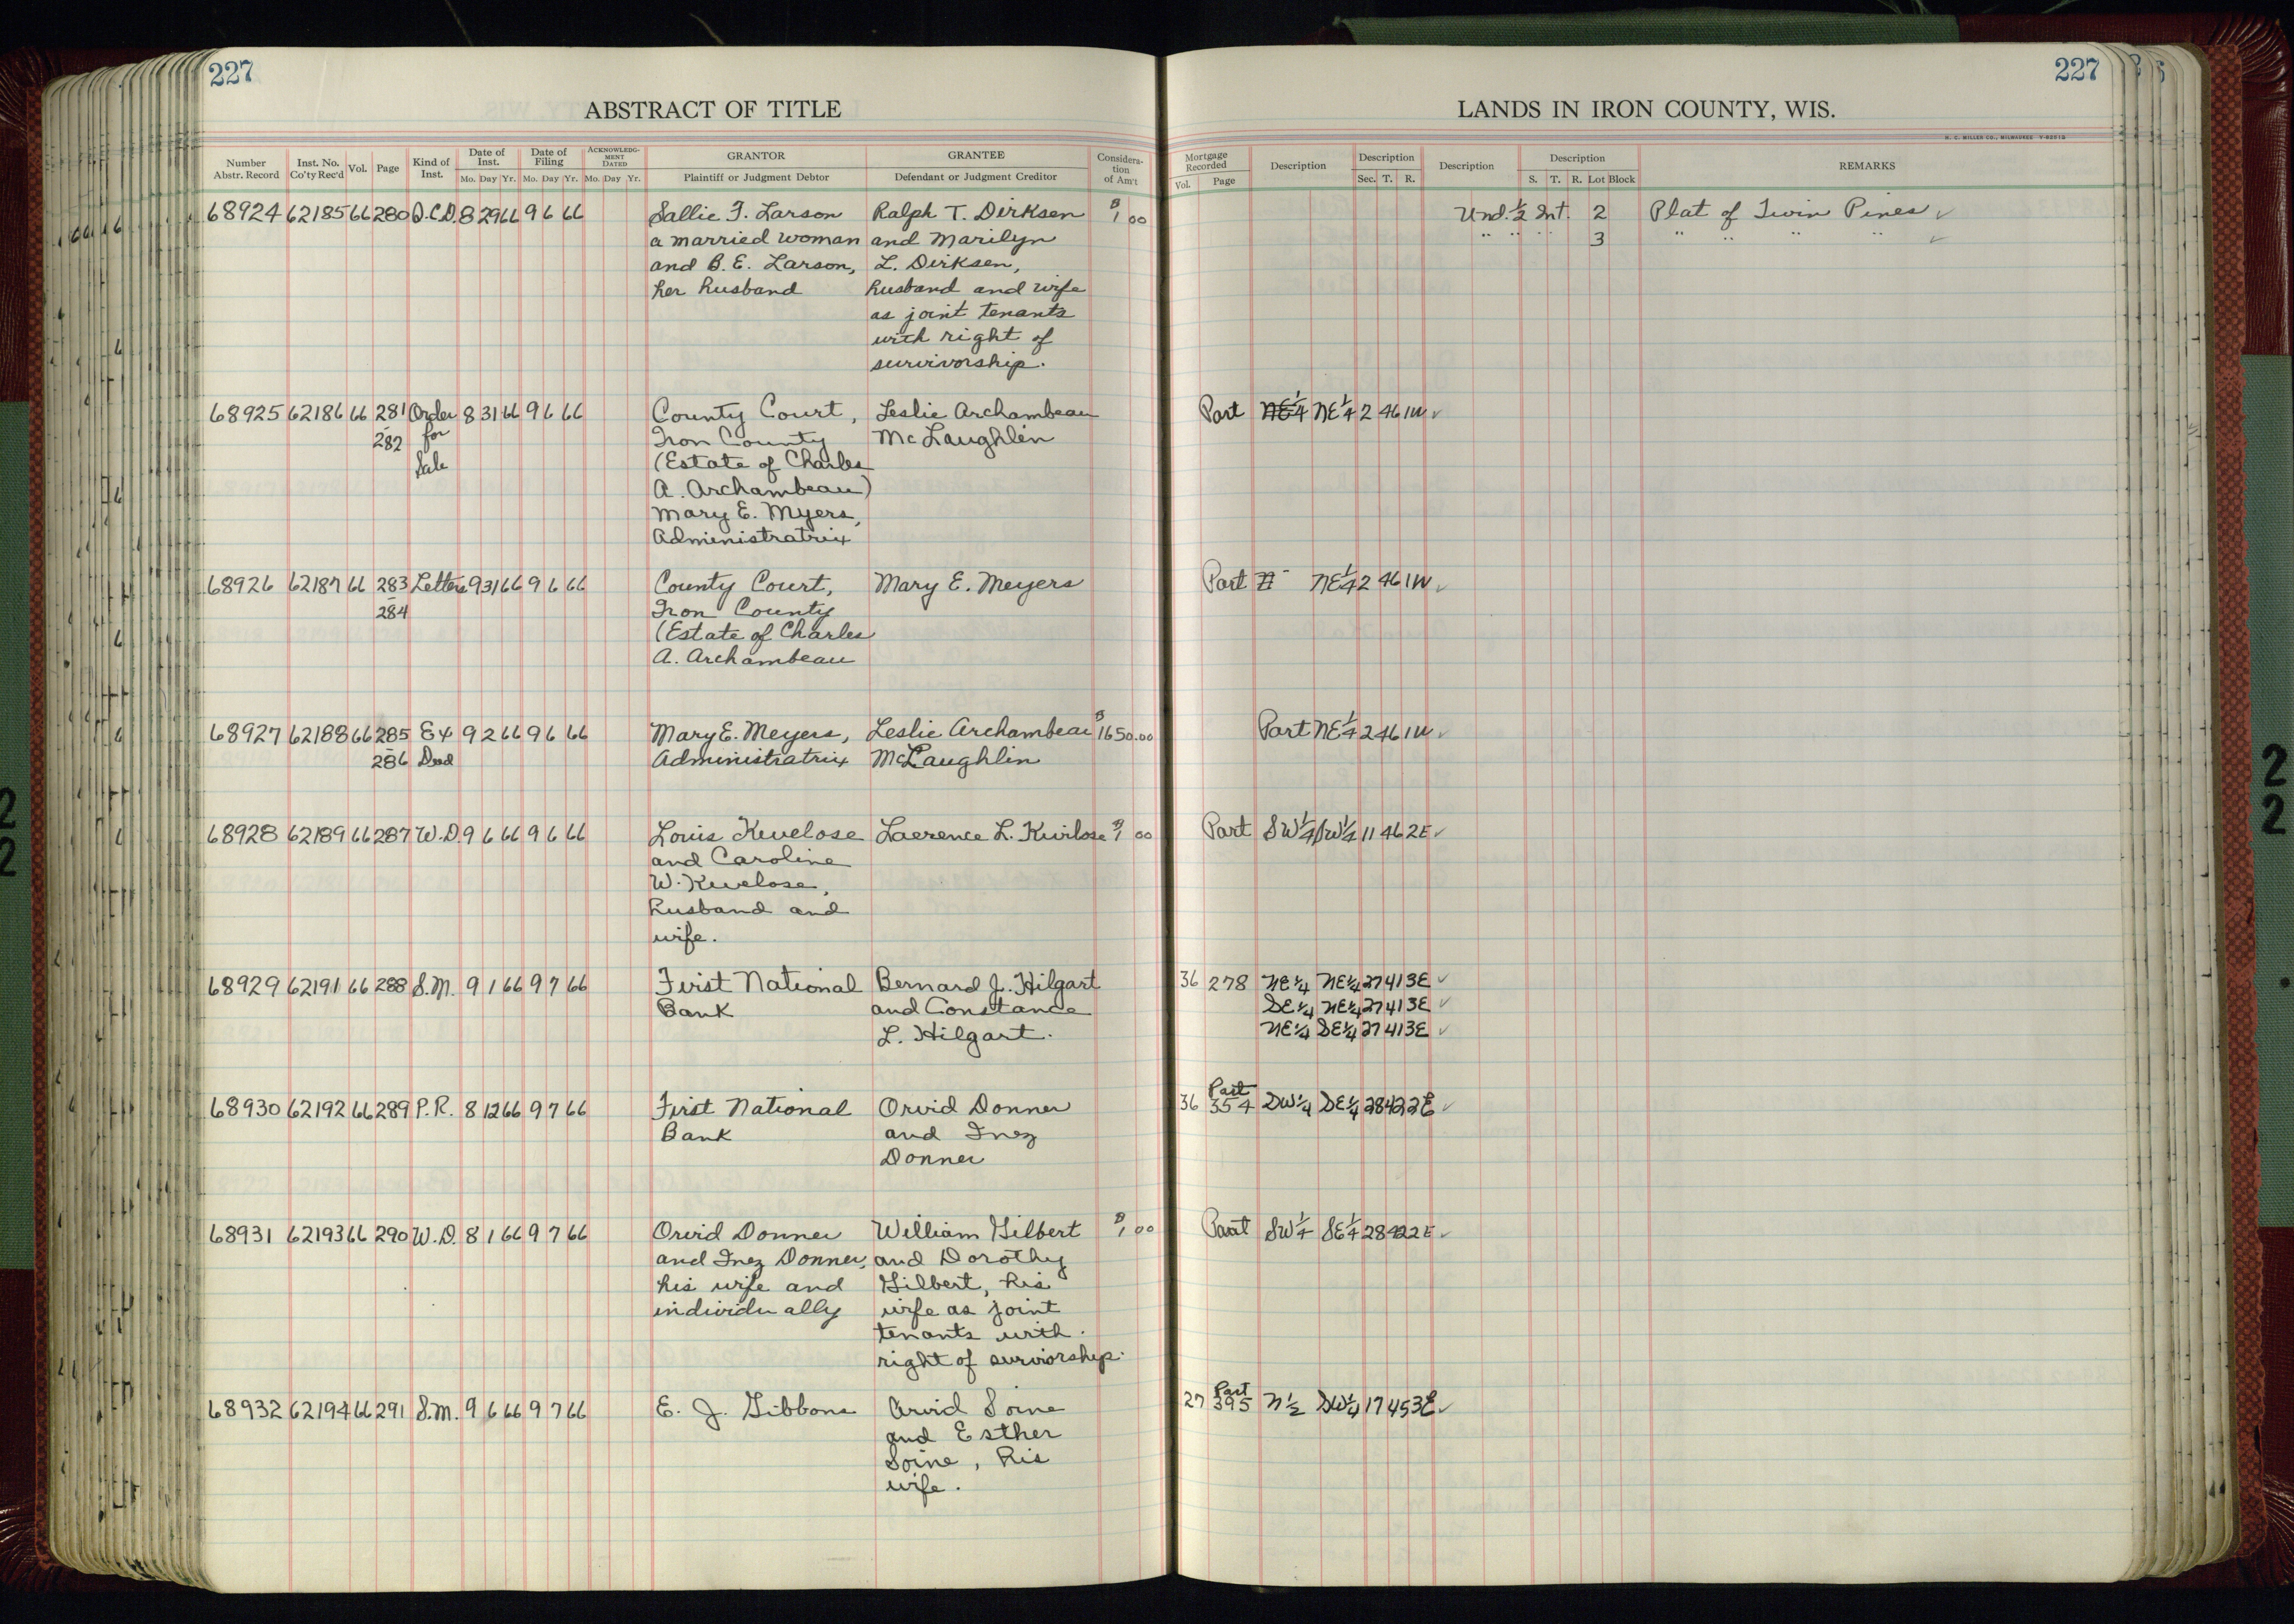 227
227
ABSTRACT OF TITLE
LANDS IN IRON COUNTY, WIS.
H. C. MILLER CO., MILWAUKEE
Number Abstr. Record Inst. No. Co'ty Rec'd Vol. Page Kind of Inst. Date of Inst. Mo. Day Yr. Date of Filing Mo. Day Yr. ACKNOWLEDG-MENT DATED Mo. Day Yr. GRANTOR Plaintiff or Judgment Debtor GRANTEE Defendant or Judgment Creditor Considera-tion of Am't Mortgage Recorded Vol. Page Description Description Sec. T. R. Description Description S. T. R. Lot Block REMARKS
68924 62185 66 280 Q.C.D. 8 29 66 9 6 66 Sallie F. Larson Ralph T. Dirksen $1 00 Und. 1/2 Int. 2 Plat of Twin Pines ✓
a married woman and Marilyn " " " 3 " " " " ✓
and B. E. Larson, L. Dirksen,
her husband husband and wife
as joint tenants
with right of
survivorship.
68925 62186 66 281 Order 8 31 66 9 6 66 County Court, Leslie Archambeau Part NE1/4 NE1/4 2 46 1W ✓
- 282 for Iron County McLaughlin
Sale (Estate of Charles
A. Archambeau)
Mary E. Myers,
Administratrix
68926 62187 66 283 Letters 9 31 66 9 6 66 County Court, Mary E. Meyers Part NE1/4 2 46 1W ✓
- 284 Iron County
(Estate of Charles
A. Archambeau
68927 62188 66 285 Ex 9 2 66 9 6 66 Mary E. Meyers, Leslie Archambeau $1650.00 Part NE1/4 2 46 1W ✓
- 286 Deed Administratrix McLaughlin
68928 62189 66 287 W.D. 9 6 66 9 6 66 Louis Kuvelose Laerence L. Kuvlose $1 00 Part SW1/4 SW1/4 11 46 2E ✓
and Caroline
W. Kuvelose,
husband and
wife.
68929 62191 66 288 S.M. 9 1 66 9 7 66 First National Bernard J. Hilgart 36 278 NE1/4 NE1/4 27 41 3E ✓
Bank and Constance SE1/4 NE1/4 27 41 3E ✓
L. Hilgart. NE1/4 SE1/4 27 41 3E ✓
68930 62192 66 289 P.R. 8 12 66 9 7 66 First National Orvid Donner 36 Part 354 SW1/4 SE1/4 28 42 2E ✓
Bank and Inez
Donner
68931 62193 66 290 W.D. 8 1 66 9 7 66 Orvid Donner William Gilbert $1 00 Part SW1/4 SE1/4 28 42 2E ✓
and Inez Donner, and Dorothy
his wife and Gilbert, his
individually wife as joint
tenants with
right of surviorship.
68932 62194 66 291 S.M. 9 6 66 9 7 66 E. J. Gibbons Arvid Soine 27 Part 395 N1/2 SW1/4 17 45 3E ✓
and Esther
Soine, his
wife.
2
2
2
2